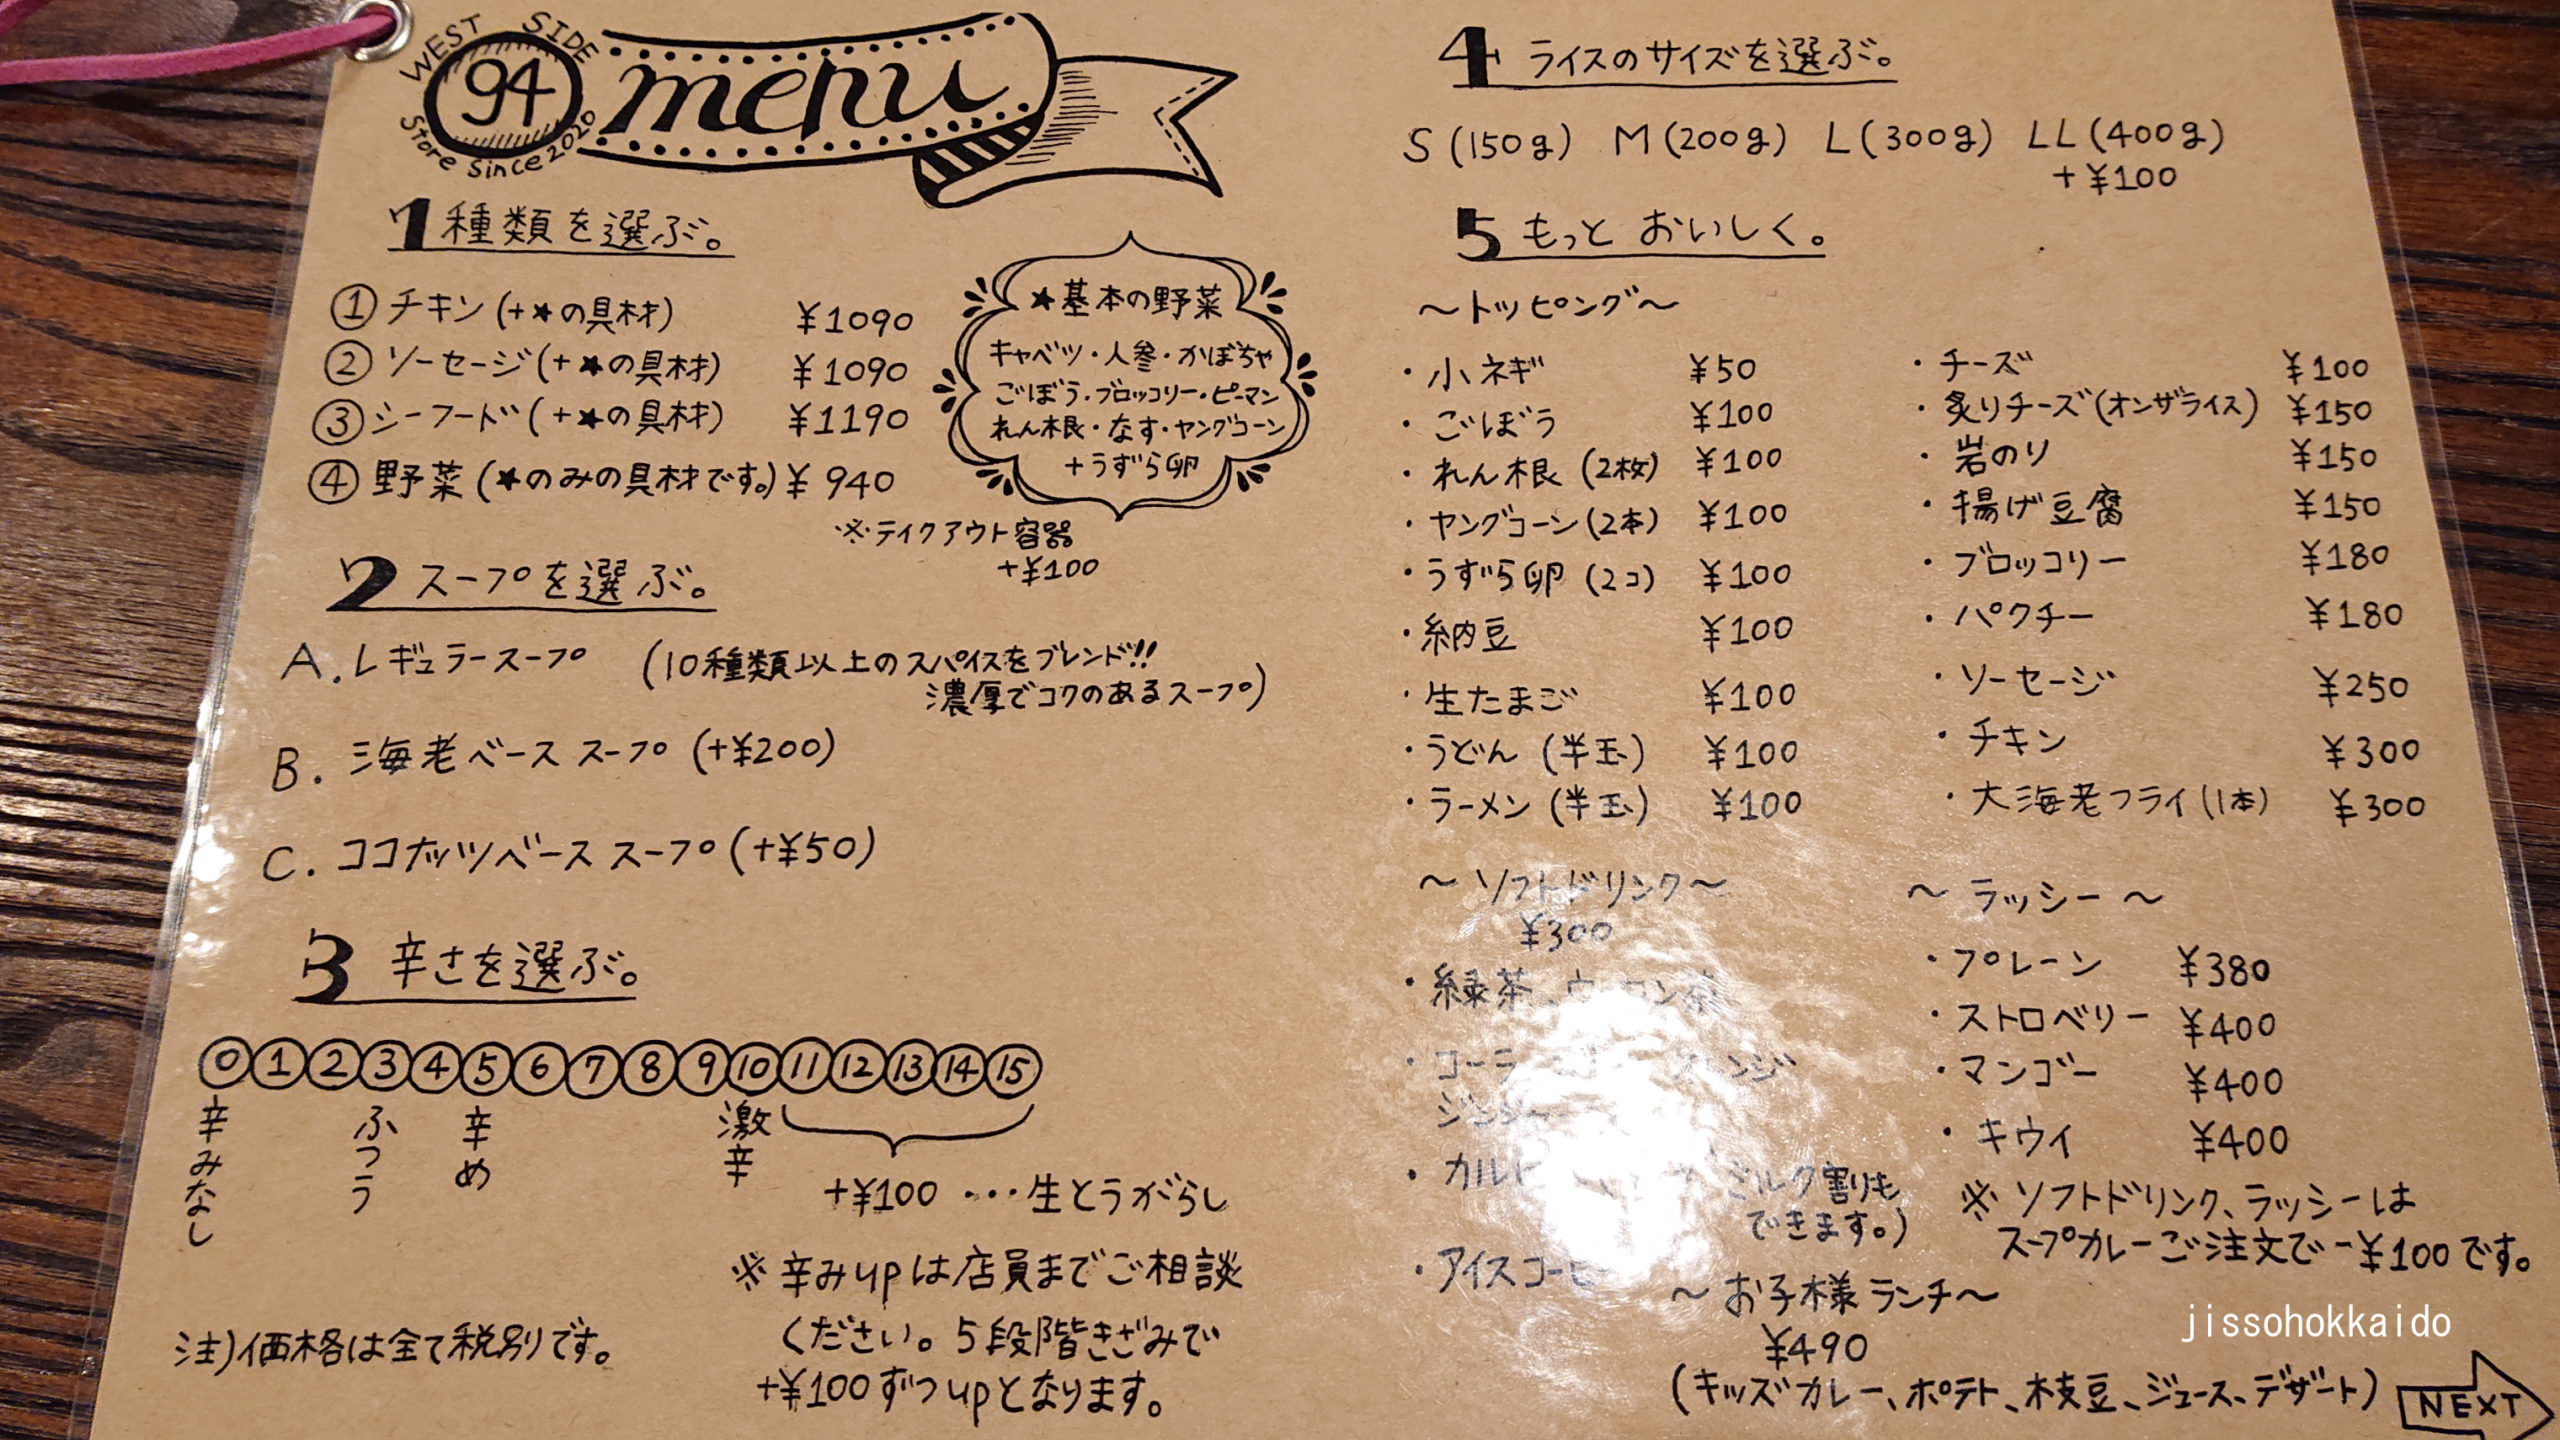 WEST SIDE
94
Store Since 2020
menu
1 種類を選ぶ。
① チキン(+★の具材) ¥1090
② ソーセージ(+★の具材) ¥1090
③ シーフード(+★の具材) ¥1190
④ 野菜(★のみの具材です。) ¥940
★基本の野菜
キャベツ・人参・かぼちゃ
ごぼう・ブロッコリー・ピーマン
れん根・なす・ヤングコーン
+うずら卵
※テイクアウト容器
+¥100
2 スープを選ぶ。
A. レギュラースープ (10種類以上のスパイスをブレンド!!
濃厚でコクのあるスープ)
B. 海老ベーススープ (+¥200)
C. ココナッツベーススープ (+¥50)
3 辛さを選ぶ。
⓪①②③④⑤⑥⑦⑧⑨⑩⑪⑫⑬⑭⑮
辛みなし
ふつう
辛め
激辛
+¥100 …生とうがらし
※ 辛みupは店員までご相談
ください。5段階きざみで
+¥100ずつupとなります。
注)価格は全て税別です。
4 ライスのサイズを選ぶ。
S(150g) M(200g) L(300g) LL(400g)
+¥100
5 もっと おいしく。
~トッピング~
・小ネギ ¥50
・ごぼう ¥100
・れん根(2枚) ¥100
・ヤングコーン(2本) ¥100
・うずら卵(2コ) ¥100
・納豆 ¥100
・生たまご ¥100
・うどん(半玉) ¥100
・ラーメン(半玉) ¥100
・チーズ ¥100
・炙りチーズ(オンザライス) ¥150
・岩のり ¥150
・揚げ豆腐 ¥150
・ブロッコリー ¥180
・パクチー ¥180
・ソーセージ ¥250
・チキン ¥300
・大海老フライ(1本) ¥300
~ソフトドリンク~
¥300
・緑茶、
・コーラ
・
ミルク割りも
できます。)
・アイスコーヒー
~ラッシー~
・プレーン ¥380
・ストロベリー ¥400
・マンゴー ¥400
・キウイ ¥400
※ ソフトドリンク、ラッシーは
スープカレーご注文で-¥100です。
~お子様ランチ~
¥490
(キッズカレー、ポテト、枝豆、ジュース、デザート)
jissohokkaido
NEXT